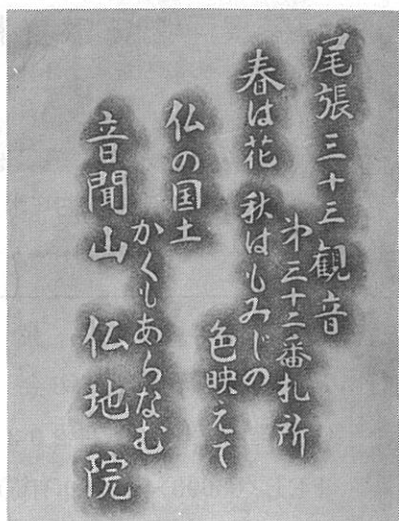 尾張三十三観音
第三十二番札所
春は花 秋はもみじの
色映えて
仏の国土
かくもあらなむ
音聞山 仏地院